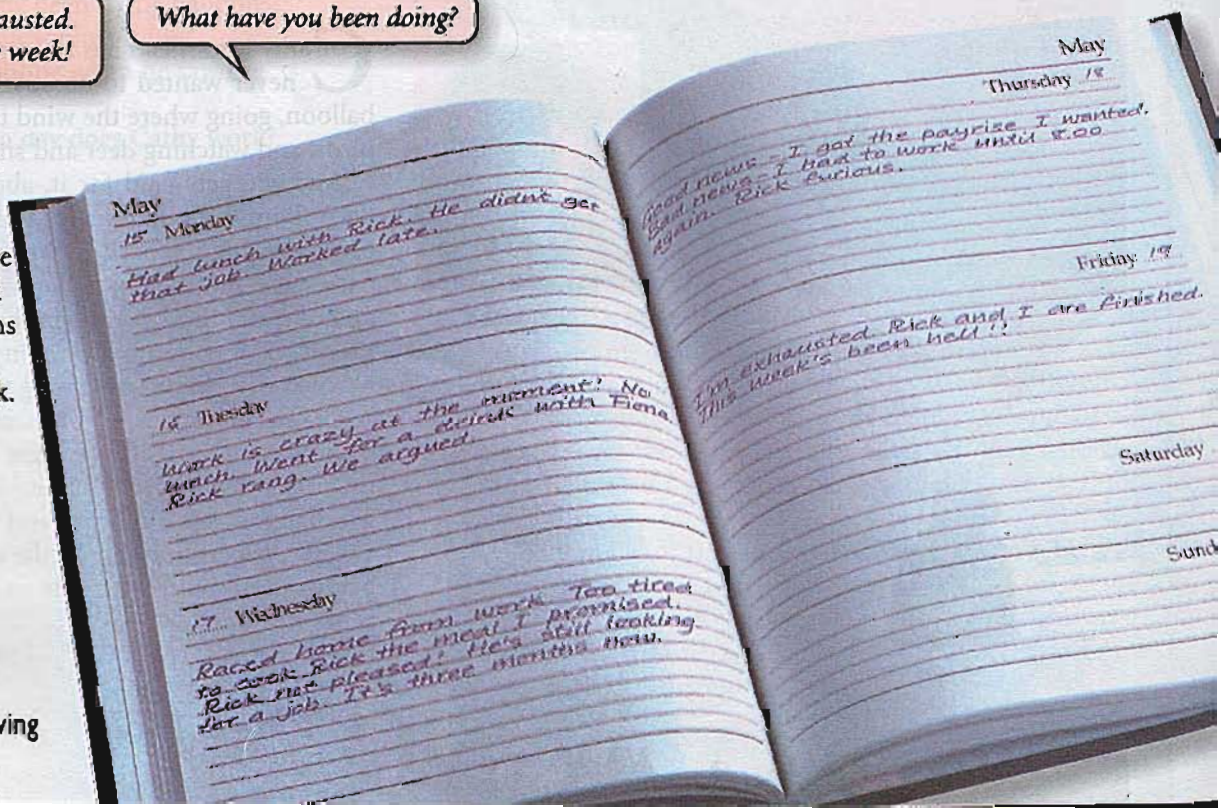 austed.
week!
What have you been doing?
never wanted
balloon, going where the wind
watching deer and
May
15 Monday
Had lunch with Rick. He didn't get
that job. Worked late.
16 Tuesday
Work is crazy at the moment! No
lunch. Went for a drink with Fiona.
Rick rang. We argued.
17 Wednesday
Raced home from work. Too tired
to cook Rick the meal I promised.
Rick not pleased! He's still looking
for a job. It's three months now.
ving
May
Thursday 18
Good news - I got the payrise I wanted.
Bad news - I had to work until 8.00
again. Rick furious.
Friday 19
I'm exhausted. Rick and I are finished.
This week's been hell!!
Saturday
Sund